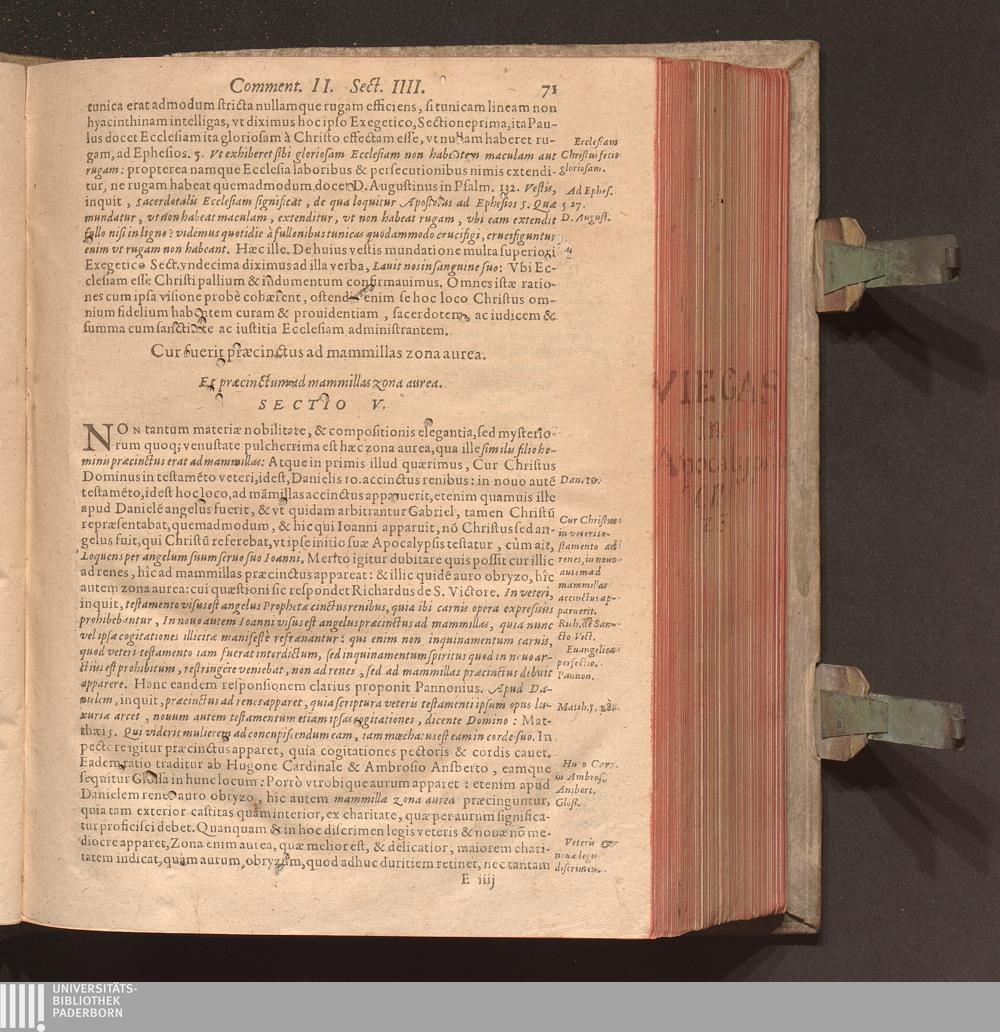 Comment. II. Sect. IIII. 71
tunica erat admodum stricta nullamque rugam efficiens, si tunicam lineam non
hyacinthinam intelligas, vt diximus hoc ipso Exegetico, Sectione prima, ita Pau-
lus docet Ecclesiam ita gloriosam à Christo effectam esse, vt nullam haberet ru-
gam, ad Ephesios. 5. Vt exhiberet sibi gloriosam Ecclesiam non habentem maculam aut
rugam: propterea namque Ecclesia laboribus & persecutionibus nimis extendi-
tur, ne rugam habeat quemadmodum docet D. Augustinus in Psalm. 132. Vestis,
inquit, sacerdotalis Ecclesiam significat, de qua loquitur Apostolus ad Ephesios 5. Quæ
mundatur, vt non habeat maculam, extenditur, vt non habeat rugam, vbi eam extendit
fullo nisi in ligno? videmus quotidie à fullonibus tunicas quodammodo crucifigi, crucifiguntur
enim vt rugam non habeant. Hæc ille. De huius vestis mundatione multa superiori
Exegetico Sect. vndecima diximus ad illa verba, Lauit nos in sanguine suo: Vbi Ec-
clesiam esse Christi pallium & indumentum confirmauimus. Omnes istæ ratio-
nes cum ipsa visione probè cohærent, ostendit enim se hoc loco Christus om-
nium fidelium habentem curam & prouidentiam, sacerdotem, ac iudicem &
summa cum sanctitate ac iustitia Ecclesiam administrantem.
Ecclesiam
Christus fecit
gloriosam.
Ad Ephes.
5 27.
D. August.
Cur fuerit præcinctus ad mammillas zona aurea.
Et præcinctum ad mammillas zona aurea.
SECTIO V.
NON tantum materiæ nobilitate, & compositionis elegantia, sed mysterio-
rum quoq; venustate pulcherrima est hæc zona aurea, qua ille similis filio ho-
minis præcinctus erat ad mammillas: Atque in primis illud quærimus, Cur Christus
Dominus in testamēto veteri, idest, Danielis 10. accinctus renibus: in nouo autē
testamēto, idest hoc loco, ad māmillas accinctus apparuerit, etenim quamuis ille
apud Danielē angelus fuerit, & vt quidam arbitrantur Gabriel, tamen Christū
repræsentabat, quemadmodum, & hic qui Ioanni apparuit, nō Christus sed an-
gelus fuit, qui Christū referebat, vt ipse initio suæ Apocalypsis testatur, cùm ait,
Loquens per angelum suum seruo suo Ioanni. Merito igitur dubitare quis possit cur illic
ad renes, hic ad mammillas præcinctus appareat: & illic quidē auro obryzo, hîc
autem zona aurea: cui quæstioni sic respondet Richardus de S. Victore. In veteri,
inquit, testamento visus est angelus Prophetæ cinctus renibus, quia ibi carnis opera expressius
prohibebantur, In nouo autem Ioanni visus est angelus præcinctus ad mammillas, quia nunc
vel ipsæ cogitationes illicitæ manifestè refrænantur: qui enim non inquinamentum carnis,
quod veteri testamento iam fuerat interdictum, sed inquinamentum spiritus quod in nouo ar-
ctius est prohibitum, restringere veniebat, non ad renes, sed ad mammillas præcinctus debuit
apparere. Hanc eandem responsionem clarius proponit Pannonius. Apud Da-
nielem, inquit, præcinctus ad renes apparet, quia scriptura veteris testamenti ipsum opus lu-
xuriæ arcet, nouum autem testamentum etiam ipsas cogitationes, dicente Domino: Mat-
thæi 5. Qui viderit mulierem ad concupiscendum eam, iam mœchatus est eam in corde suo. In
pectore igitur præcinctus apparet, quia cogitationes pectoris & cordis cauet.
Eadem ratio traditur ab Hugone Cardinale & Ambrosio Ansberto, eamque
sequitur Glossa in hunc locum: Porrò vtrobique aurum apparet: etenim apud
Danielem renes auro obryzo, hîc autem mammillæ zona aurea præcinguntur,
quia tam exterior castitas quàm interior, ex charitate, quæ per aurum significa-
tur proficisci debet. Quanquam & in hoc discrimen legis veteris & nouæ nō me-
diocre apparet, Zona enim aurea, quæ melior est, & delicatior, maiorem chari-
tatem indicat, quàm aurum, obryzum, quod adhuc duritiem retinet, nec tantam
Dan. 10.
Cur Christus
in veteri te-
stamento ad
renes, in nouo
autem ad
mammillas
accinctus ap-
paruerit.
Rich. de San-
cto Vict.
Euangelica
perfectio.
Pannon.
Matth. 5. 28.
Hugo Card.
in Ambros.
Ansbert.
Gloss.
Veteris &
nouæ legis
discrimen.
E iiij
VIEGAS
In
Apocalypsin
UNIVERSITÄTS-
BIBLIOTHEK
PADERBORN